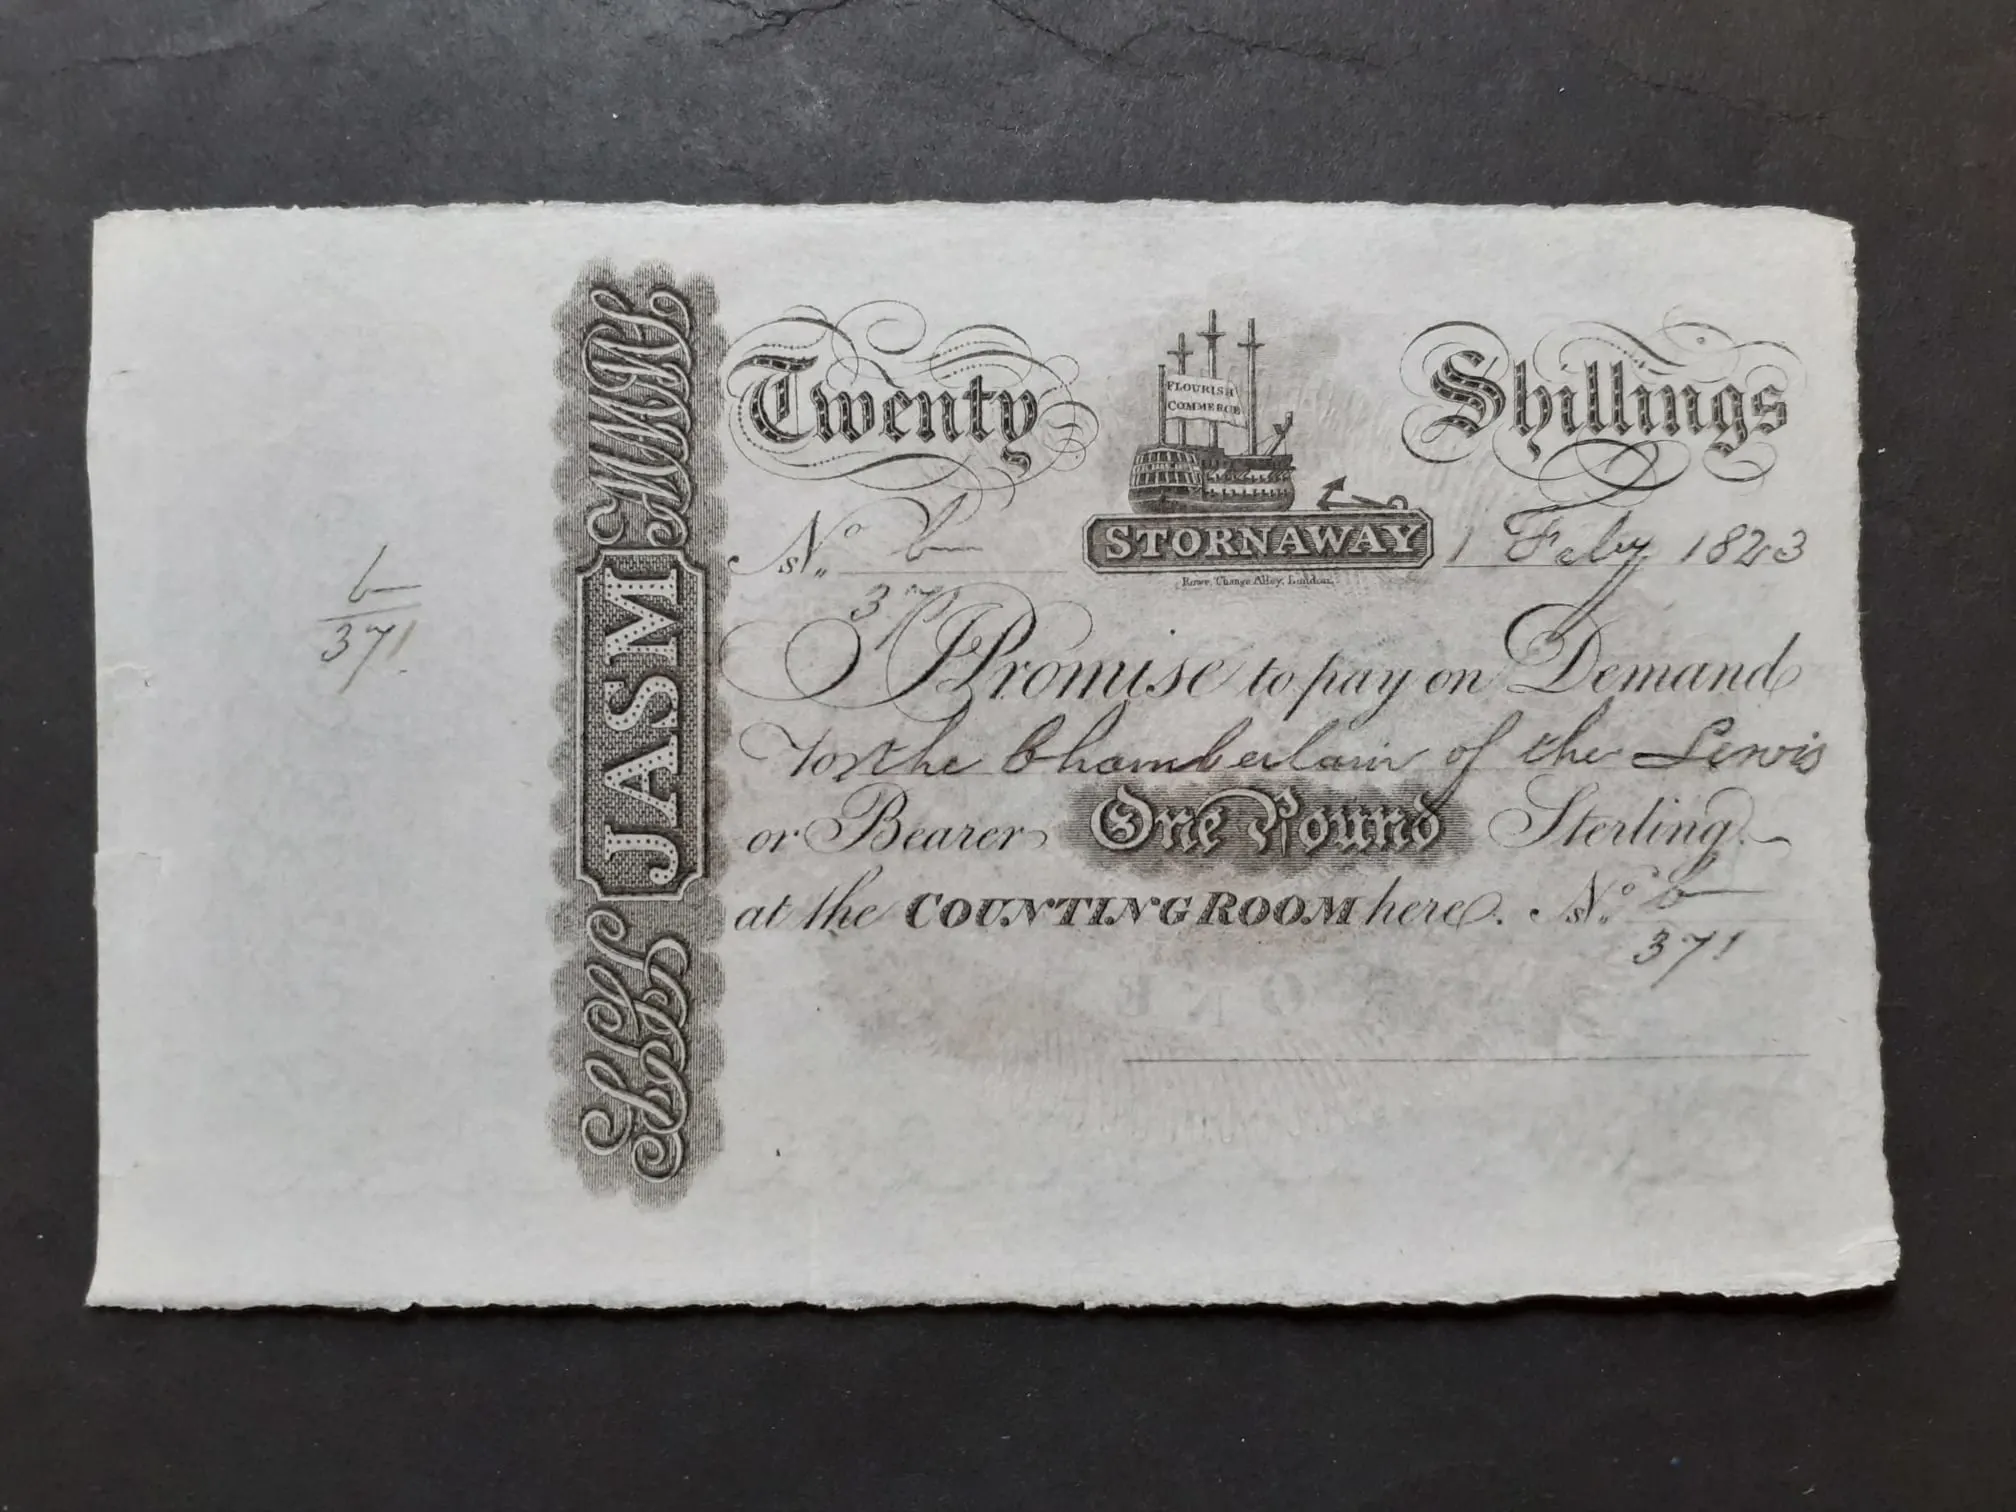 b
371
JASM
Twenty
FLOURISH
COMMERCE
Shillings
No. b
371
STORNAWAY
1 Feby 1823
Rowe, Change Alley, London.
I Promise to pay on Demand
To the Chamberlain of the Lewis
or Bearer One Pound Sterling
at the COUNTING ROOM here. No. b
371
ONE